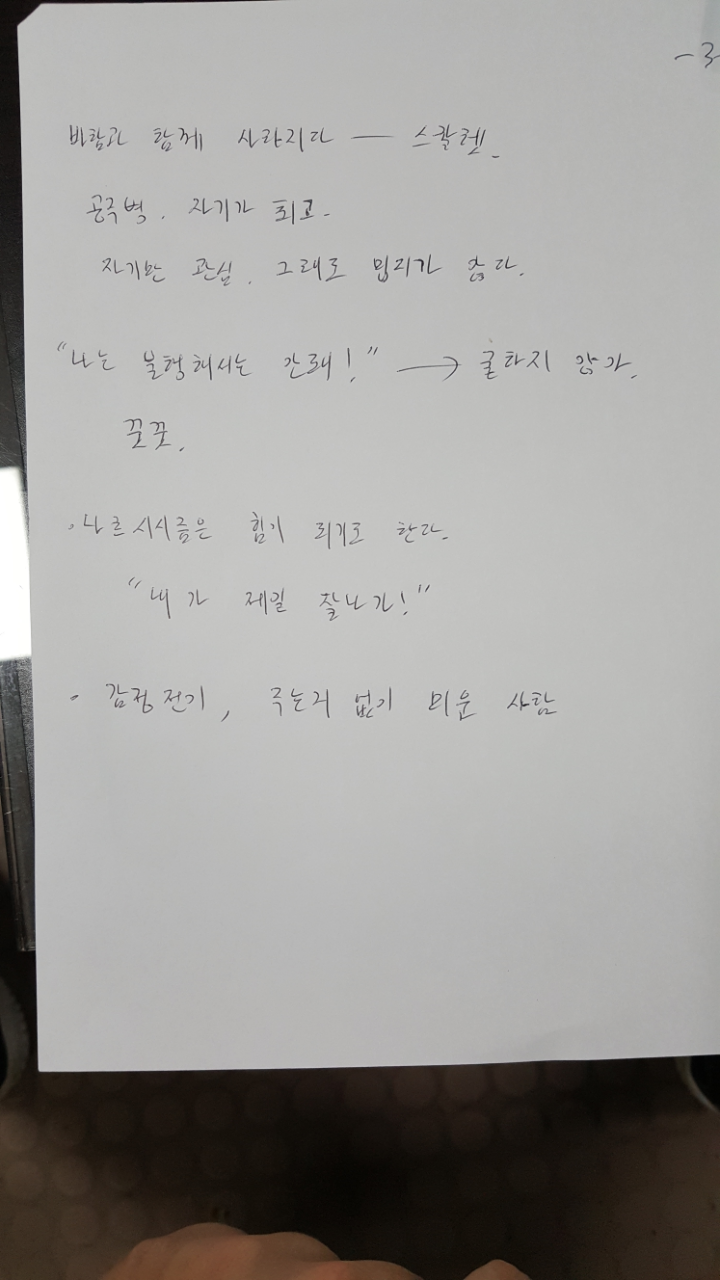 -3
바람과 함께 사라지다 — 스칼렛.
공주병. 자기가 최고.
자기만 관심. 그래도 밉지가 않다.
"나는 불행해서는 안돼!" → 굴하지 않아.
꿋꿋.
· 나르시시즘은 힘이 되기도 한다.
"내가 제일 잘나가!"
· 감정전이, 주는거 없이 미운 사람